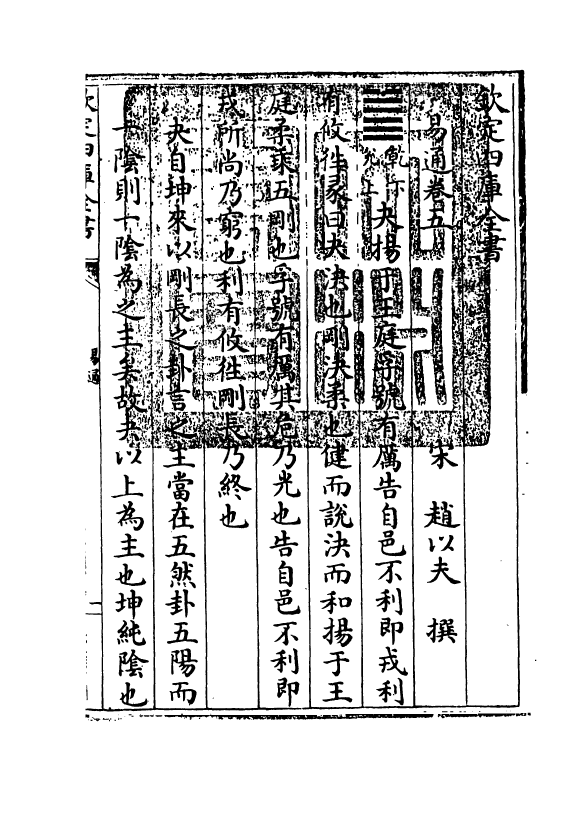 欽定四庫全書
易通卷五
宋 趙以夫 撰
乾下
兌上
夬揚于王庭孚號有厲告自邑不利即戎利
有攸往彖曰夬決也剛決柔也健而說決而和揚于王
庭柔乘五剛也孚號有厲其危乃光也告自邑不利即
戎所尚乃窮也利有攸往剛長乃終也
夬自坤來以剛長之卦言之主當在五然卦五陽而
一陰則一陰為之主矣故夬以上為主也坤純陰也
欽定四庫全書
易通